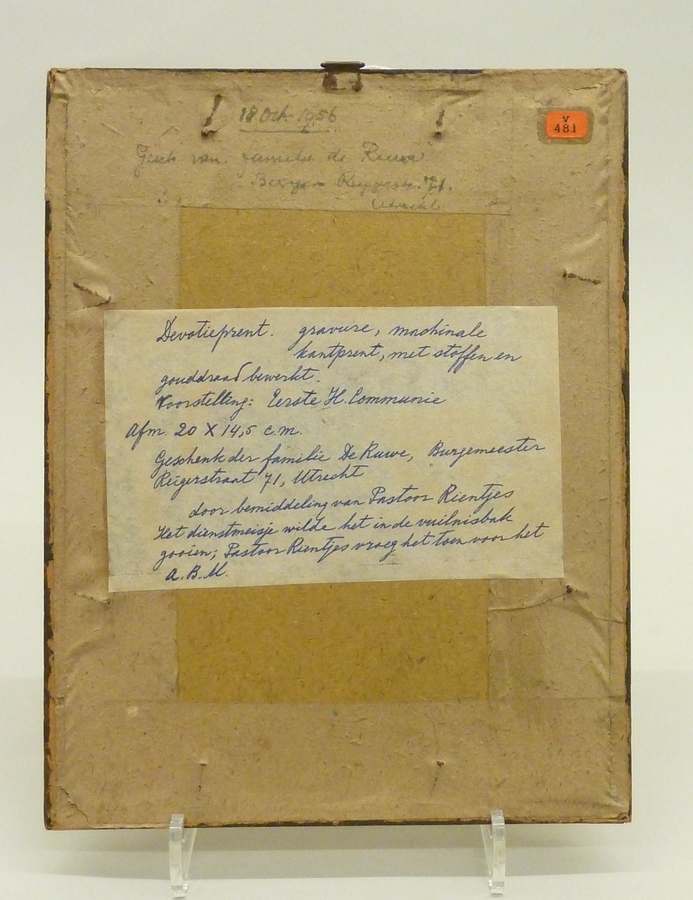 18 Oct. 1956
V
481
Gesch van familie de Ruwe
Burgem Reigerstr. 71.
Utrecht
Devotieprent. gravure, machinale
kantprent, met stoffen en
gouddraad bewerkt.
Voorstelling: Eerste H. Communie
Afm. 20 X 14,5 c.m.
Geschenk der familie De Ruwe, Burgemeester
Reigerstraat 71, Utrecht
door bemiddeling van Pastoor Rientjes
Het dienstmeisje wilde het in de vuilnisbak
gooien; Pastoor Rientjes vroeg het toen voor het
A.B.M.